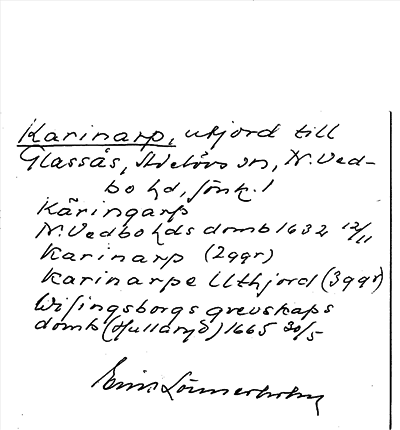 Karinarp, utjord till
Glassås, Adelövs sn, N. Ved-
bo hd, Jönk. l
Käringarp
N. Vedbo hds domb 1632 12/11
Karinarp (2 ggr)
Karinarpe Uthjord (3 ggr)
Wisingsborgs grevskaps
domb (Hullarÿd) 1665 30/5